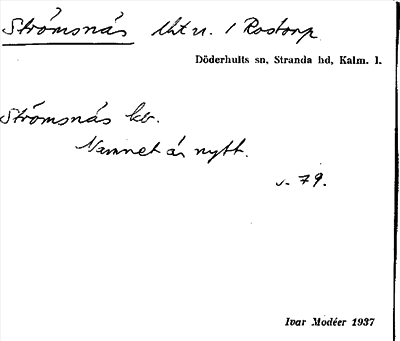 Strömsnäs Åbt u. 1 Rostorp
Döderhults sn, Stranda hd, Kalm. l.
Strömsnäs kv.
Namnet är nytt.
s. 79.
Ivar Modéer 1937